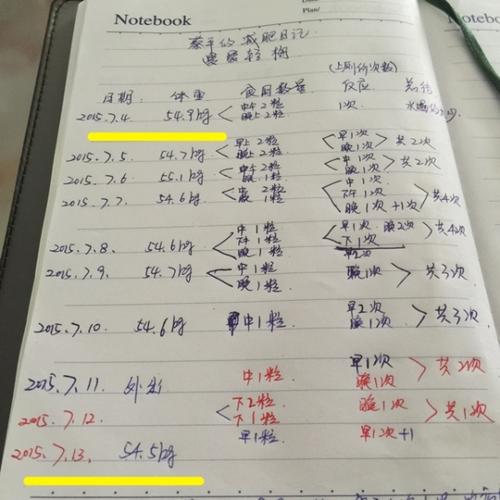 Notebook
Plan/
Notebook
的减肥日记
(上厕所次数)
日期: 体重 食用数量 反应 总结
2015.7.4 54.9kg 中午2粒 1次
晚上2粒
2015.7.5 54.7kg 早上2粒 早1次 共2次
晚上2粒 晚1次
2015.7.6 55.1kg 中午2粒 中1次 共2次
晚1粒 晚1次
2015.7.7 54.6kg 中2粒 中1次 共4次
晚1粒 下午1次
晚1次+1次
2015.7.8. 54.6kg 中1粒 早1次 晚2次 共4次
下午1粒 下1次
晚1粒
2015.7.9. 54.7kg 中1粒 早2次 共3次
晚1粒 晚1次
2015.7.10 54.6kg 中1粒 早2次 共3次
晚1次
2015.7.11 外出 中1粒 早1次 共2次
晚1次
2015.7.12. 下2粒 晚1次 共1次
下1粒
2015.7.13. 54.5kg 早1粒 早1次+1